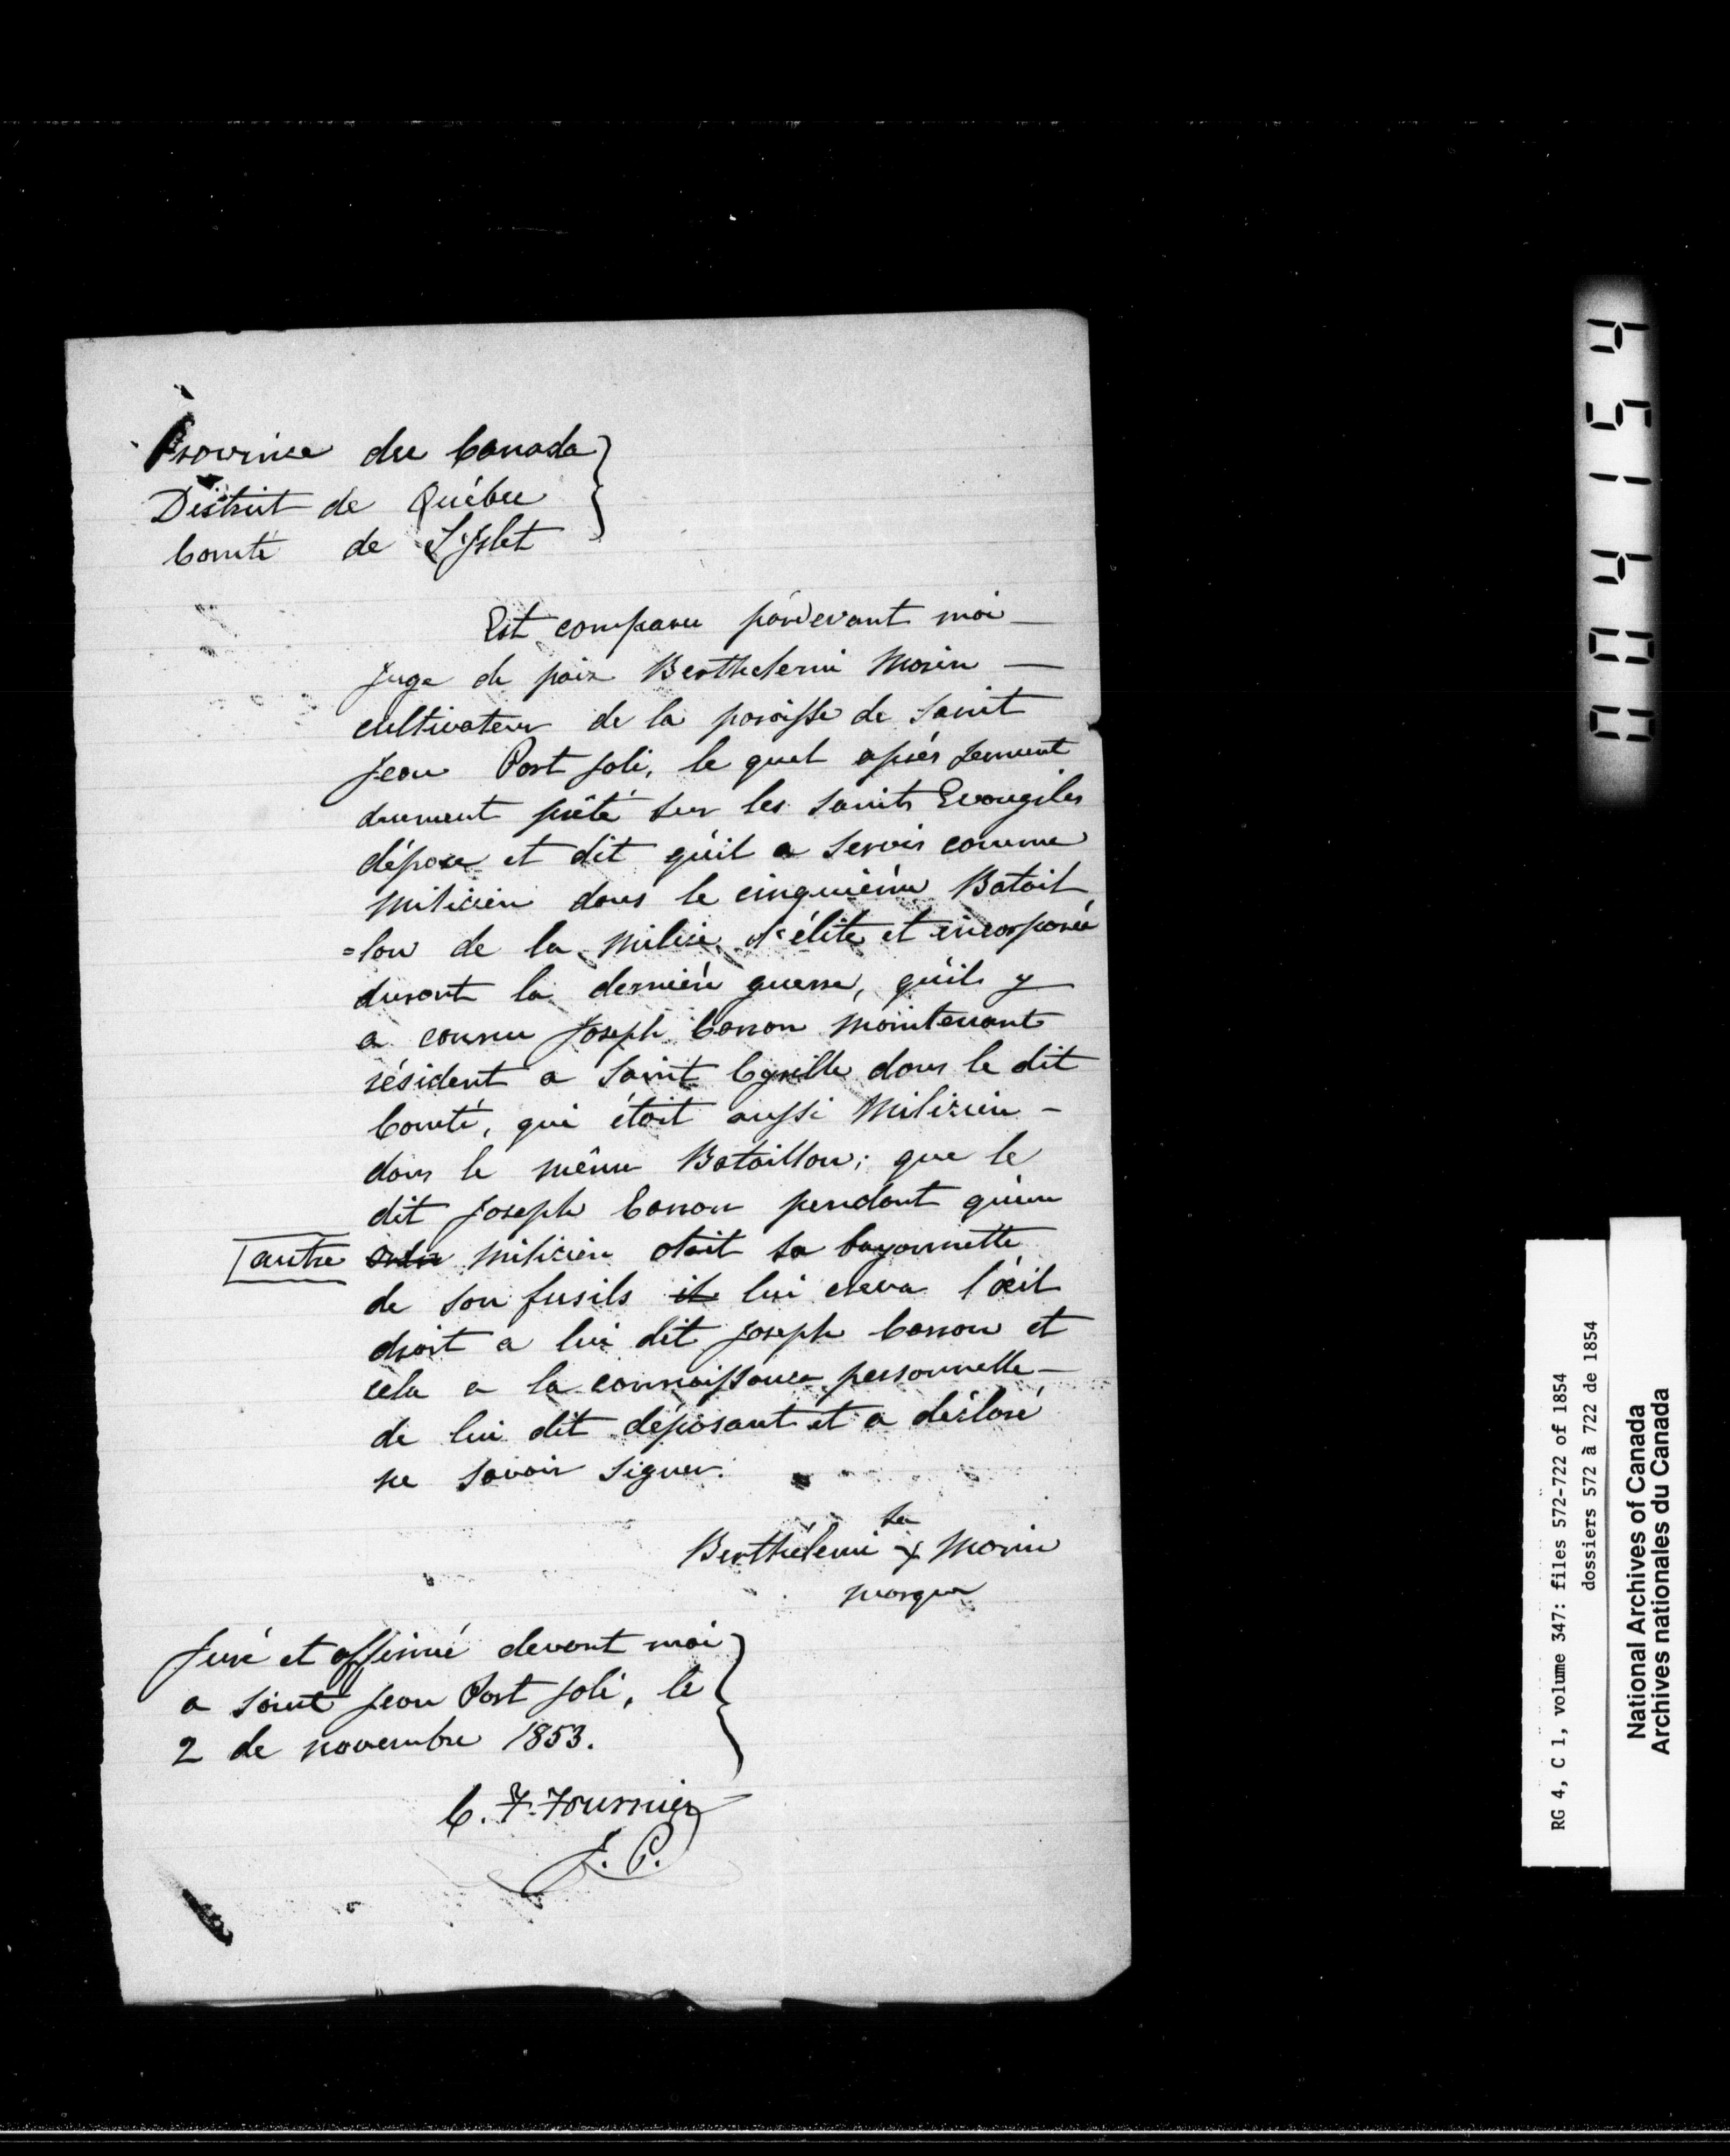 Province du Canada
District de Québec
Comté de L'Islet
Est comparu pardevant moi
Juge de paix Berthelemi Morin
cultivateur de la paroisse de Saint
Jean Port Joli, le quel après serment
duement prêté sur les Saints Evangiles
dépose et dit qu'il a servis comme
Milicien dans le cinquième Batail
=lon de la Milice d'élite et incorporée
durant la dernière guerre, qu'ils y
a connu Joseph Caron maintenant
résident a Saint Cyrille dans le dit
Comté, qui étoit aussi Milicien -
dans le même Bataillon; que le
dit Joseph Caron pendant qu'un
autre milicien otait sa bayonnette
de son fusils il lui creva l'œil
droit a lui dit Joseph Caron et
cela a la connaissance personnelle
de lui dit déposant et a déclaré
ne savoir signer.
sa
Berthélemi x Morin
marque
Juré et affirmé devant moi
a Saint Jean Port Joli, le
2 de novembre 1853.
C. F. Fournier
J. P.
004154
RG 4, C 1, volume 347: files 572-722 of 1854
dossiers 572 à 722 de 1854
National Archives of Canada
Archives nationales du Canada